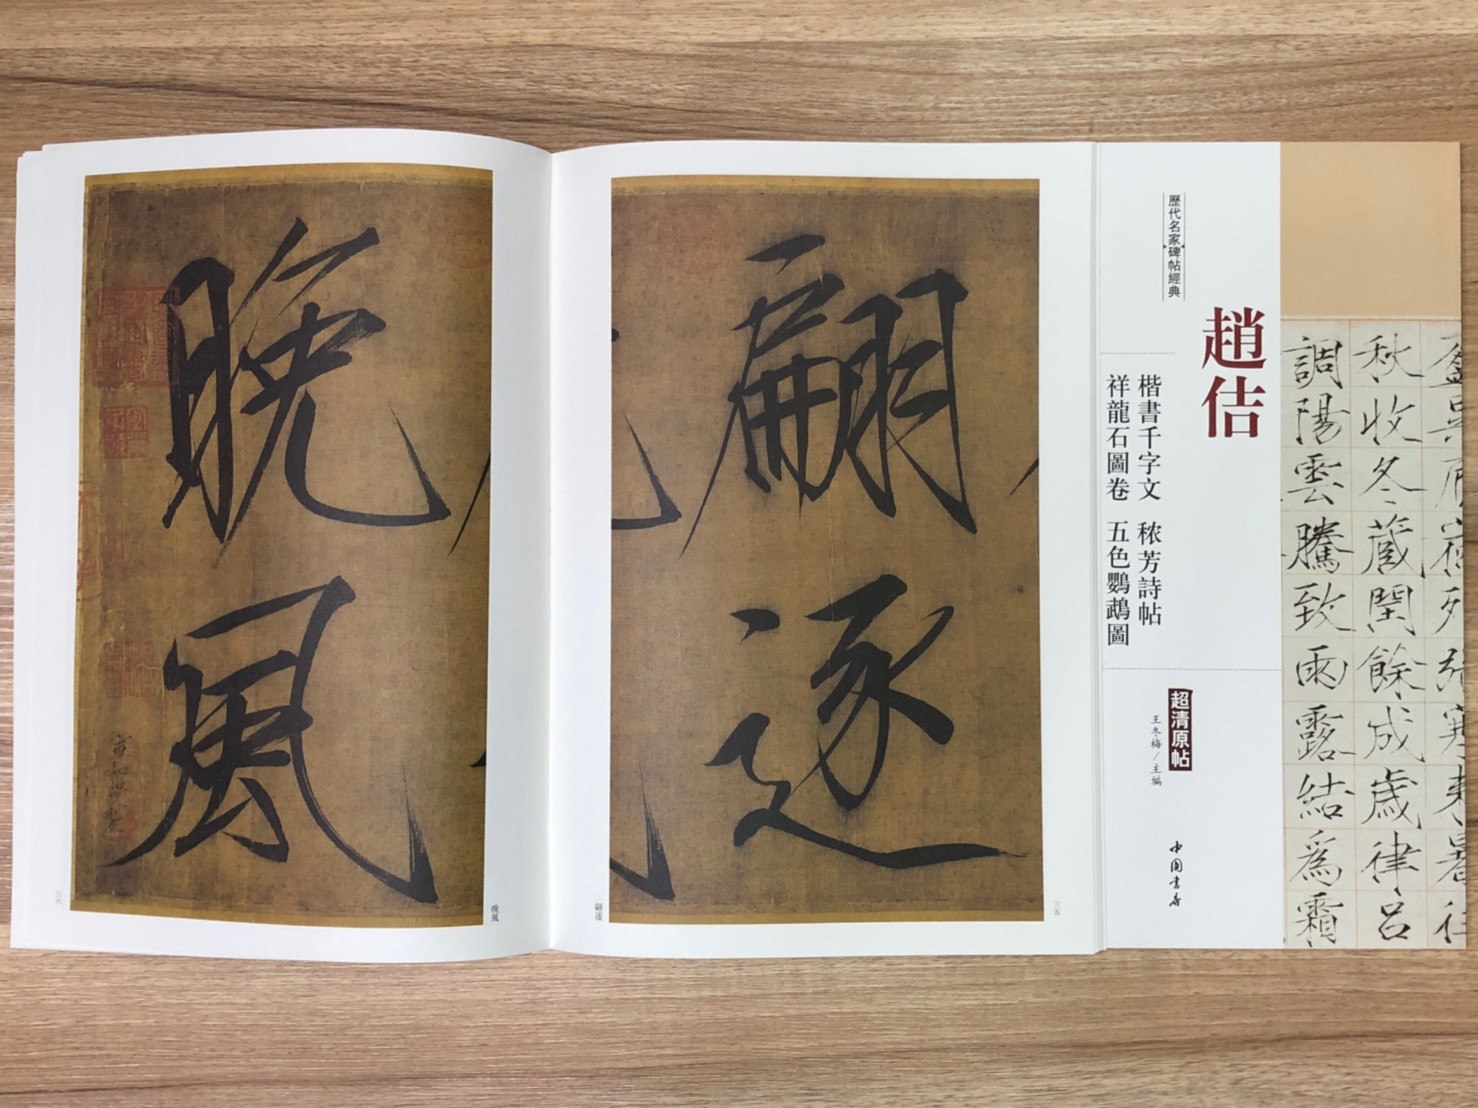 歷代名家碑帖經典
趙佶
楷書千字文 穠芳詩帖
祥龍石圖卷 五色鸚鵡圖
超清原帖
王冬梅/主編
中國書店
秋收冬蔵閏餘成歲律呂
調陽雲騰致雨露結爲霜
翩逐
三五
翩逐
晚風
晚風
三六